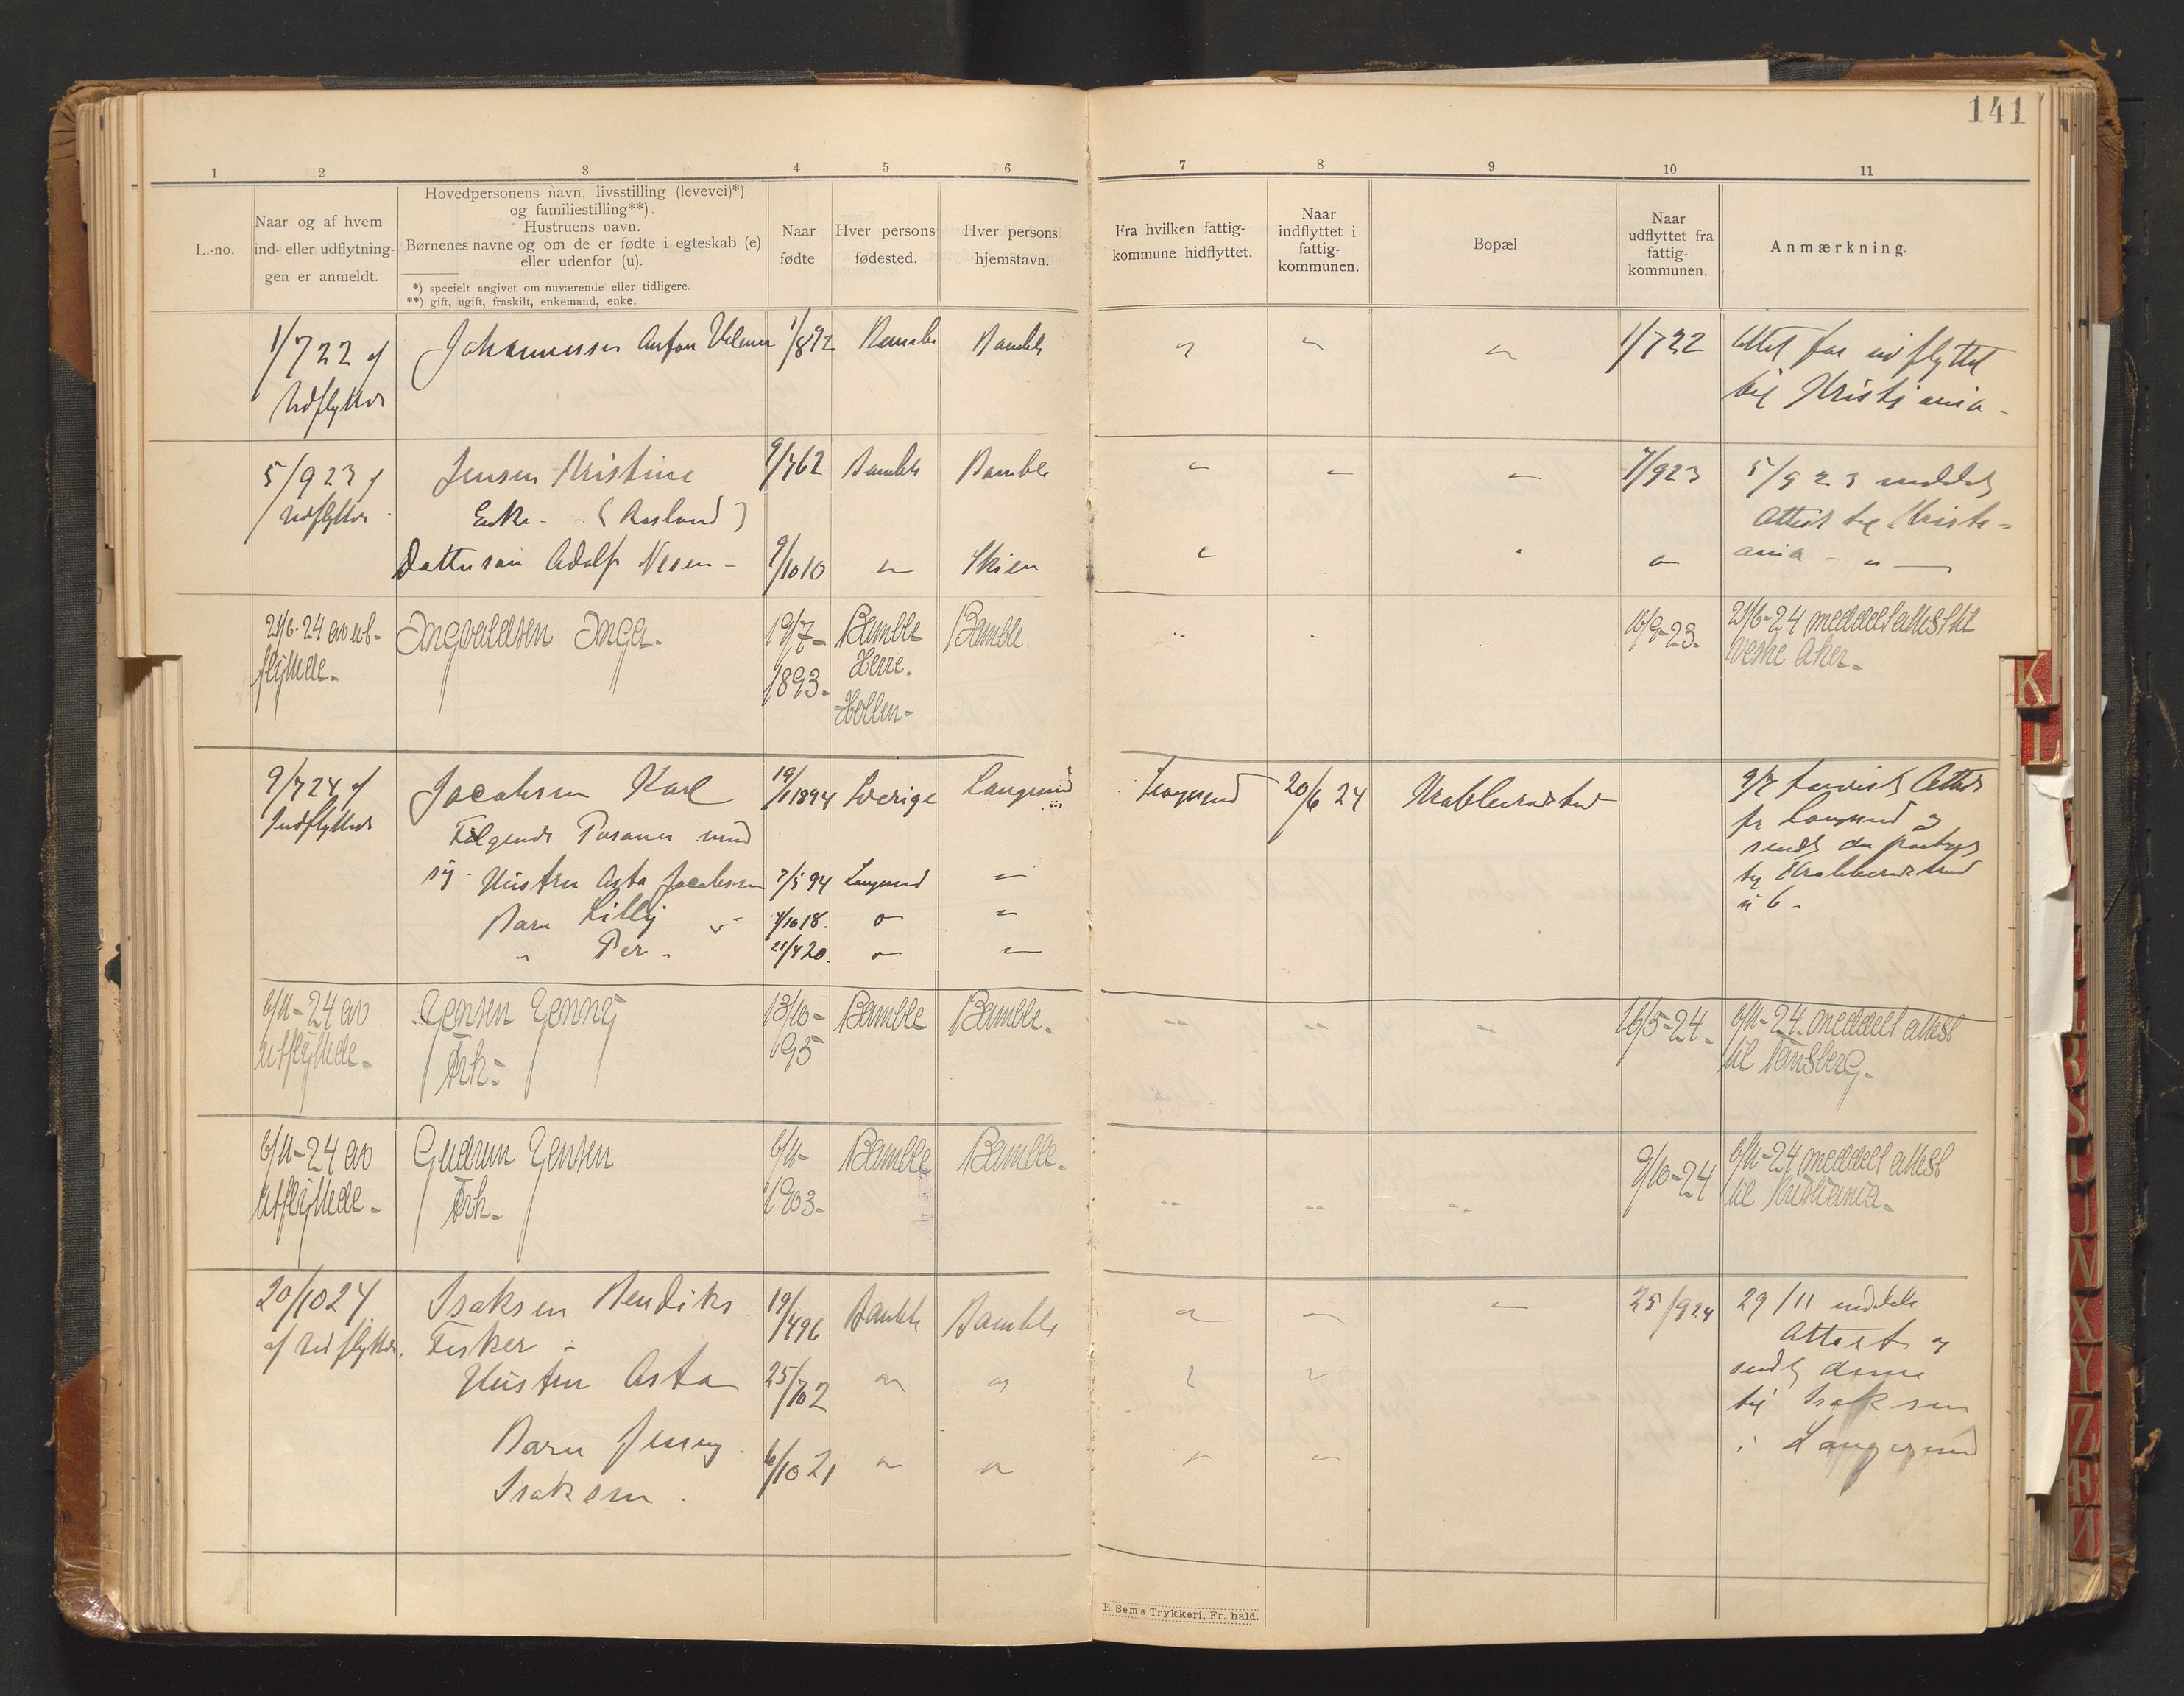 141
1 2 3 4 5 6 7 8 9 10 11
L.-no.
Naar og af hvem
ind- eller udflytnin-
gen er anmeldt.
Hovedpersonens navn, livsstilling (levevei)*)
og familiestilling**).
Hustruens navn.
Børnenes navne og om de er fødte i egteskab (e)
eller udenfor (u).
*) specielt angivet om nuværende eller tidligere.
**) gift, ugift, fraskilt, enkemand, enke.
Naar
fødte
Hver persons
fødested.
Hver persons
hjemstavn.
Fra hvilken fattig-
kommune hidflyttet.
Naar
indflyttet i
fattig-
kommunen.
Bopæl
Naar
udflyttet fra
fattig-
kommunen.
Anmærkning.
1/7 22 af
Udflyttede
Johannessen Anton
1/8 92
Bamble
Bamble
1/7 22
udflyttet
til Kristiania -
5/9 23 af
Udflyttede
Jensen Kristine
Enke - (Aasland)
9/7 62
Bamble
Bamble
7/9 23
5/9 23 meddelt
Attest til Kristi=
ania - " -
Dattersøn Adolf
9/10 10
"
Skien
21/6-24 av ut-
flyttede -
Ingvaldsen Inga -
19/7-
1893-
Bamble
Herre.
Hollen -
Bamble.
16/9-23.
21/6-24 meddelt attest til
Vestre Aker -
9/7 24 af
Indflyttede
Jacobsen Karl
Følgende Personer med
sig. Hustru Asta Jacobsen
Barn Lilly "
" Per -
19/1 1894
7/5 94
4/10 18.
21/4 20.
Sverige
Langesund
Langesund
Langesund
20/6 24
Krabberødstrand
9/7
fr Langesund og
til Krabberødstrand
n 6 -
6/11-24 av
utflyttede -
Jensen Jenny
Frk -
13/10-
95
Bamble
Bamble.
16/5-24.
6/11-24. meddelt attest
til Tønsberg -
6/11-24 av
utflyttede -
Gudrun Jensen
Frk -
6/11-
1903-
Bamble
Bamble -
9/10-24
6/11-24 meddelt attest
til Kristiania -
20/10 24
af Udflyttede.
Isaksen Bendiks
Fisker -
Hustru Asta
Barn Jenny
Isaksen .
19/4 96
25/7 02
6/10 21
Bamble
Bamble
25/9 24
29/11 meddelt
Attest og
sendt denne
til Isaksen
i Langesund
E. Sem's Trykkeri, Fr. hald.
K
L
X
Y
Z
Æ